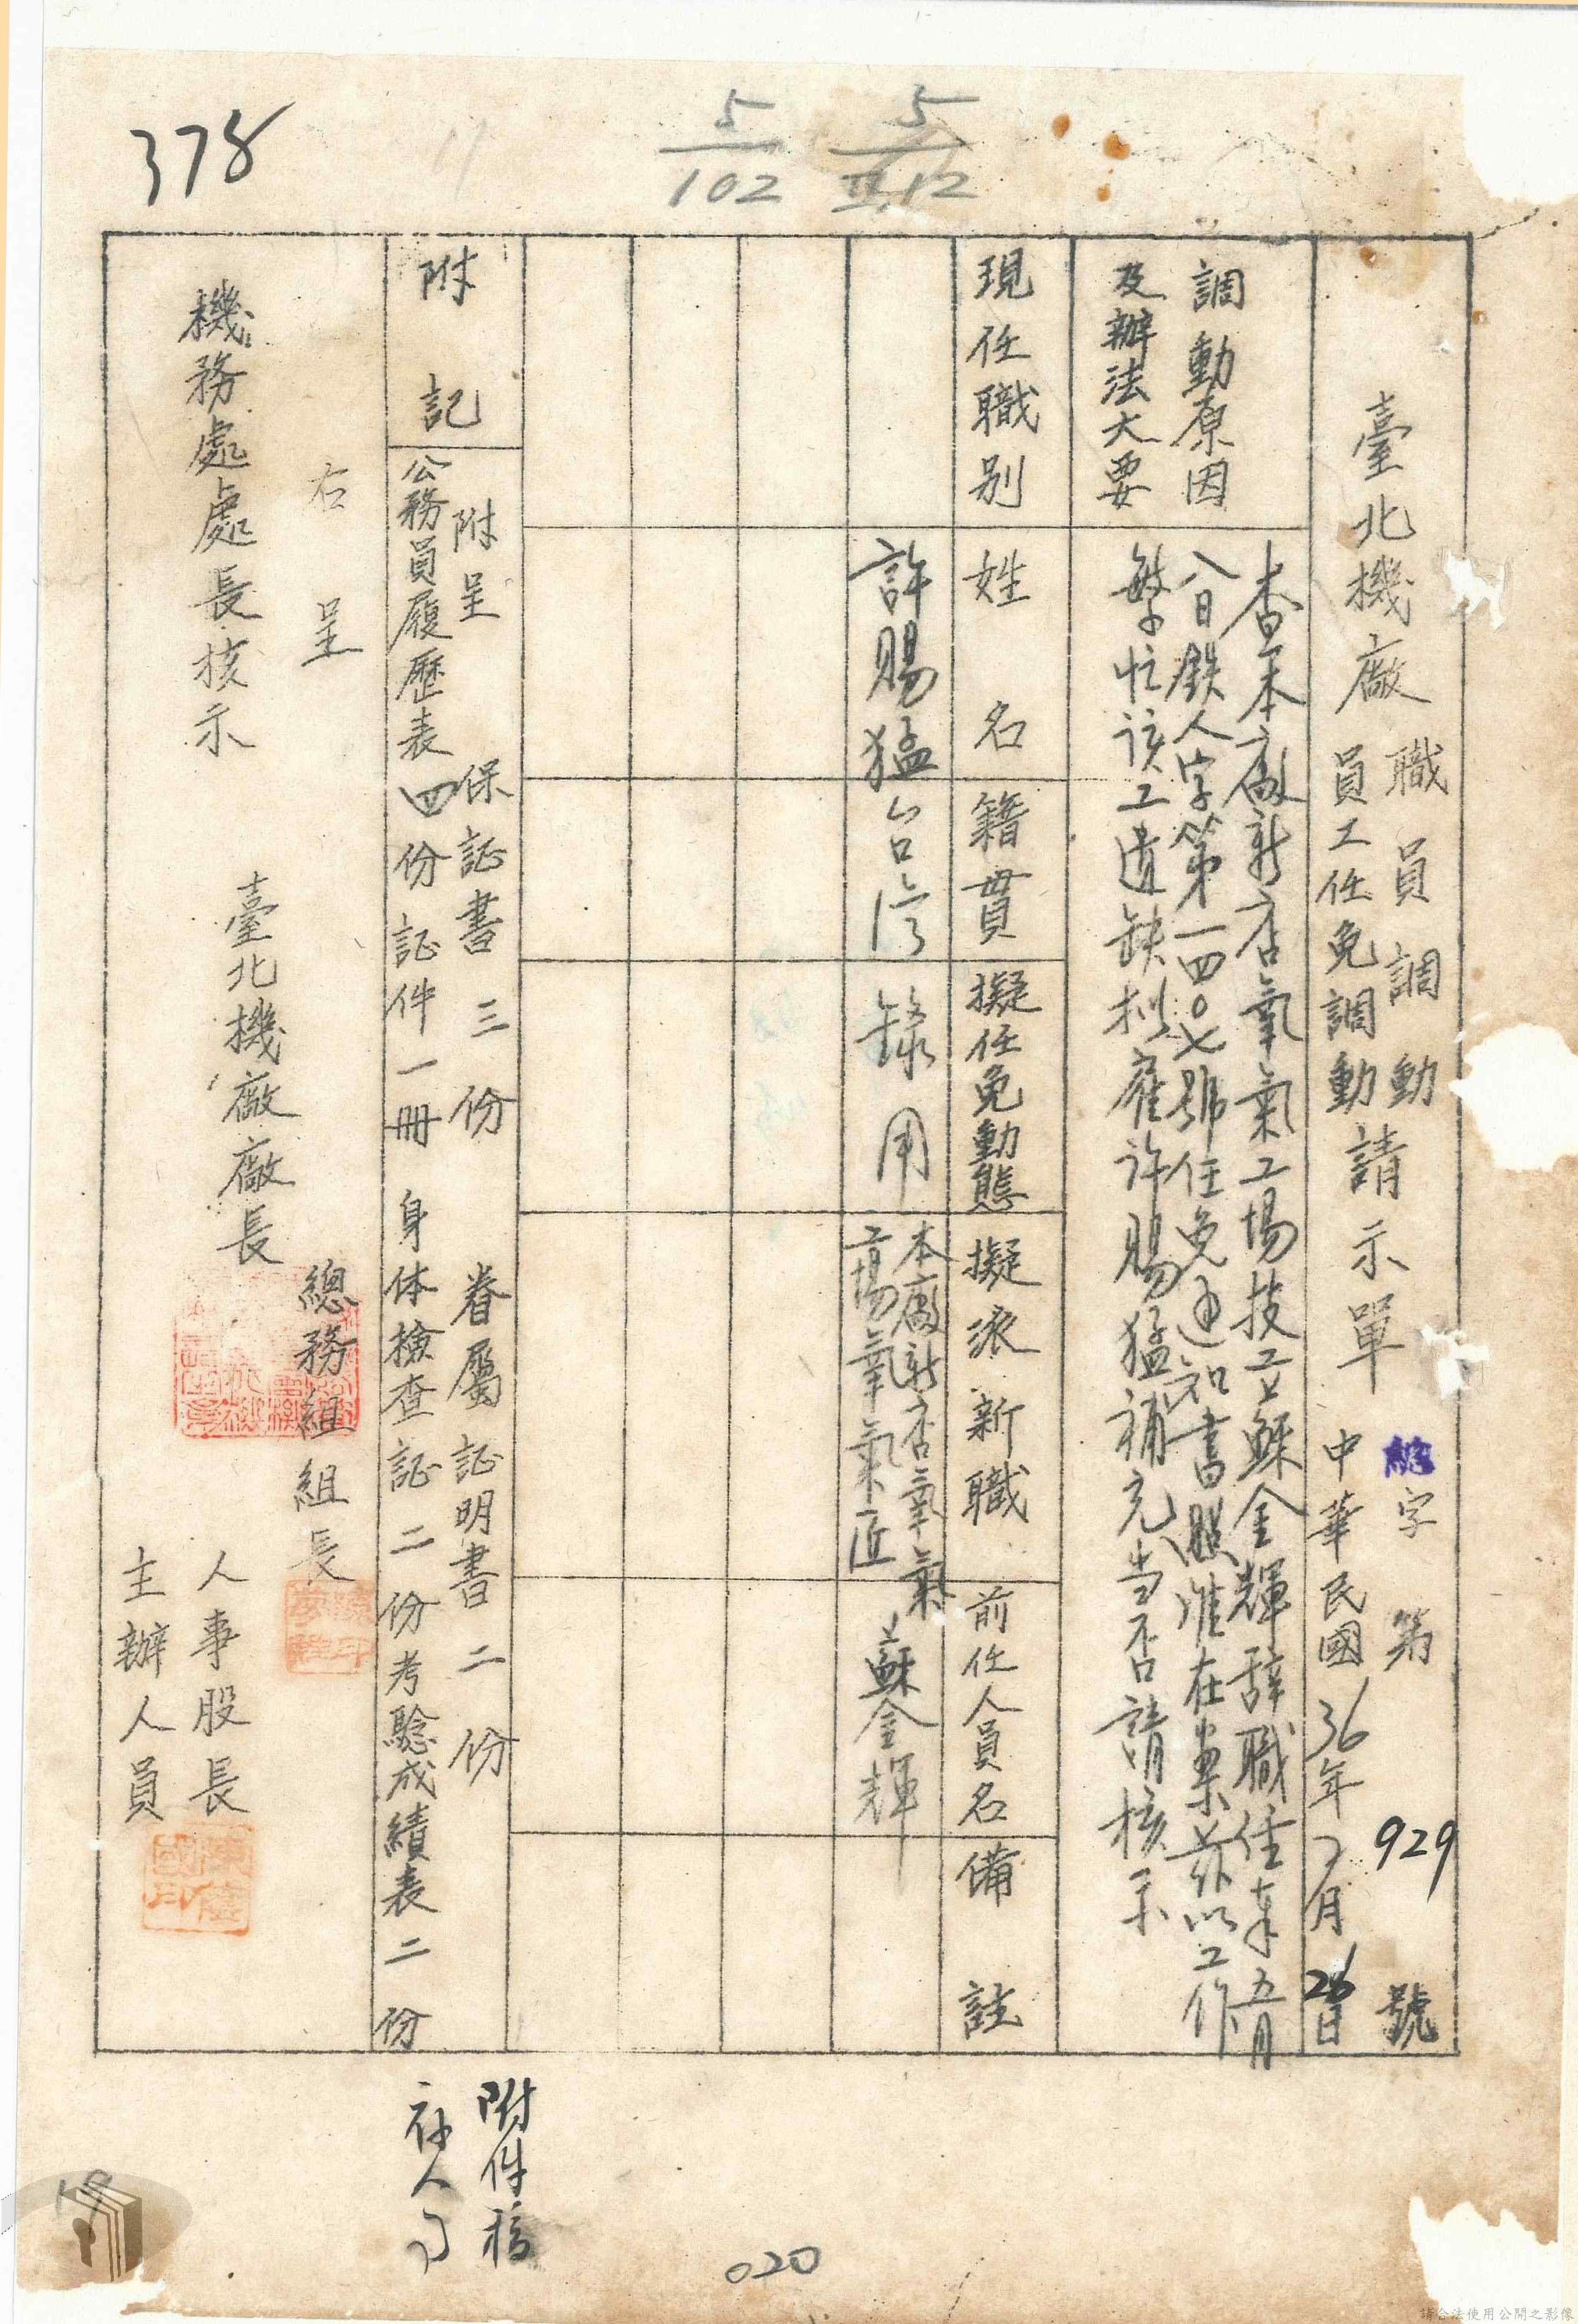 378
5/102
5/II.12
臺北機廠
職員調動
員工任免調動
請示單
總字第929號
中華民國36年7月26日
調動原因
及辦法大要
查本廠新店氧氣工場技工蘇金輝辞職任本五月
八日鉄人字第一四〇七號任免通知書照准在案茲以工作
繁忙該工遺缺拟雇许賜猛補充当否請核示
現任職别
姓名
籍貫
擬任免動態
擬派新職
前任人員名
備註
許賜猛
台湾
錄用
本廠新店氧氣
工場氧氣匠
蘇金輝
附記
附呈 保証書三份 眷屬証明書二份
公務員履歷表四份 証件一冊 身体檢查証二份 考驗成績表二份
右呈
機務處處長核示
臺北機廠廠長
總務組組長
人事股長
主辦人員
附件移
020
請合法使用公開之影像